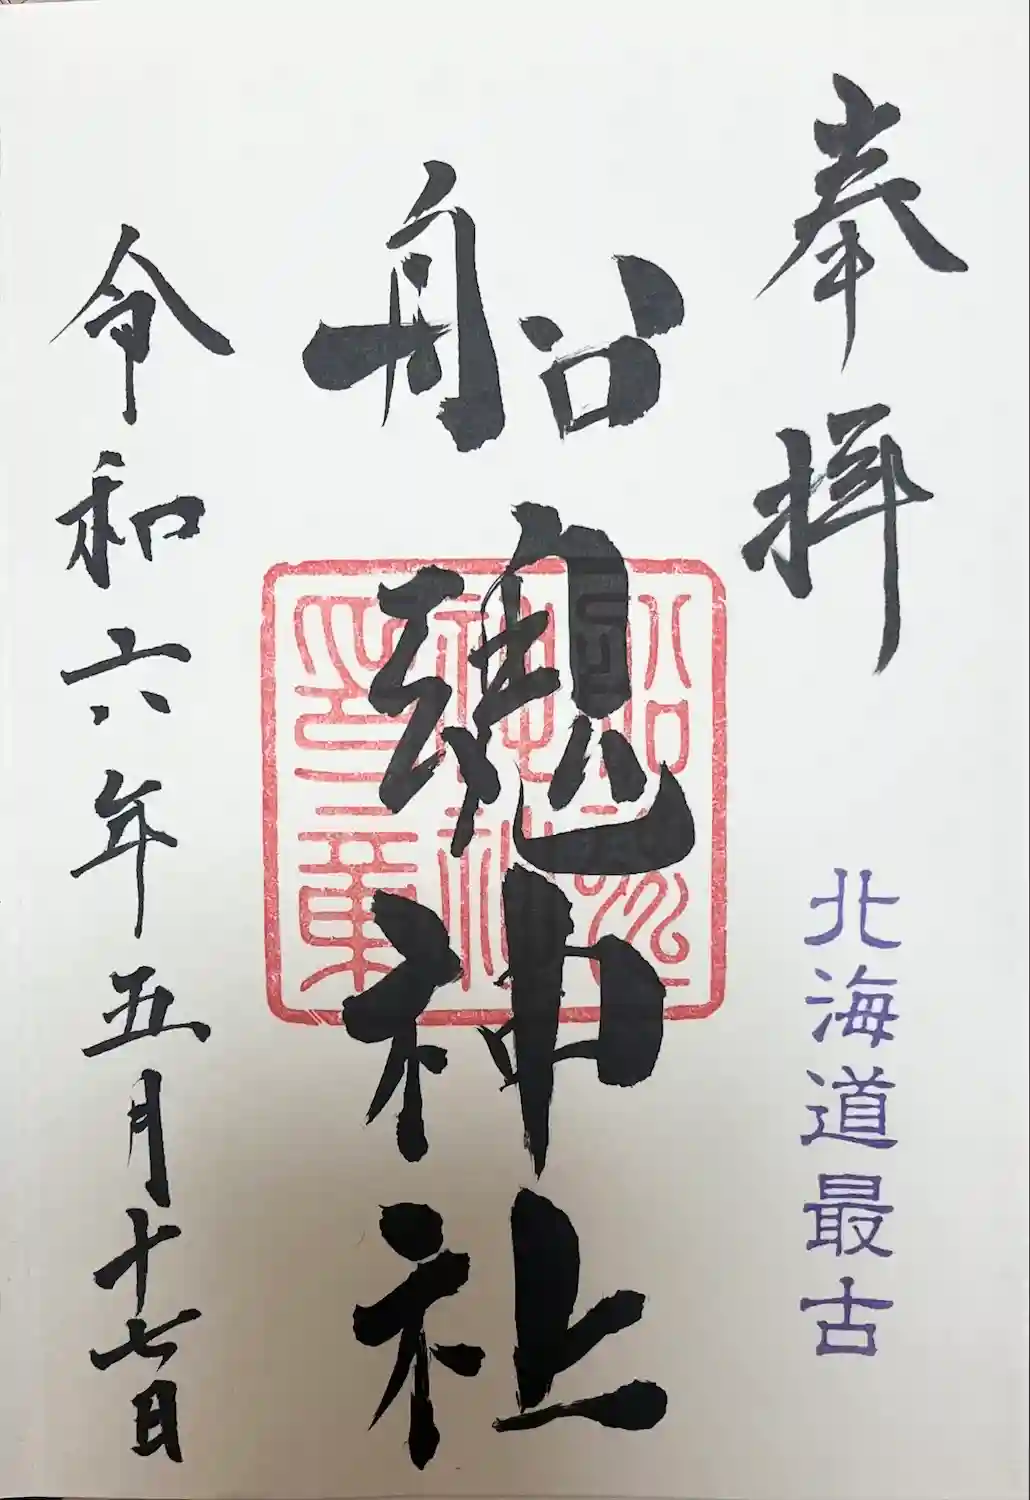 奉拝
北海道最古
船魂神社
船魂
神社
印章
令和六年五月十七日